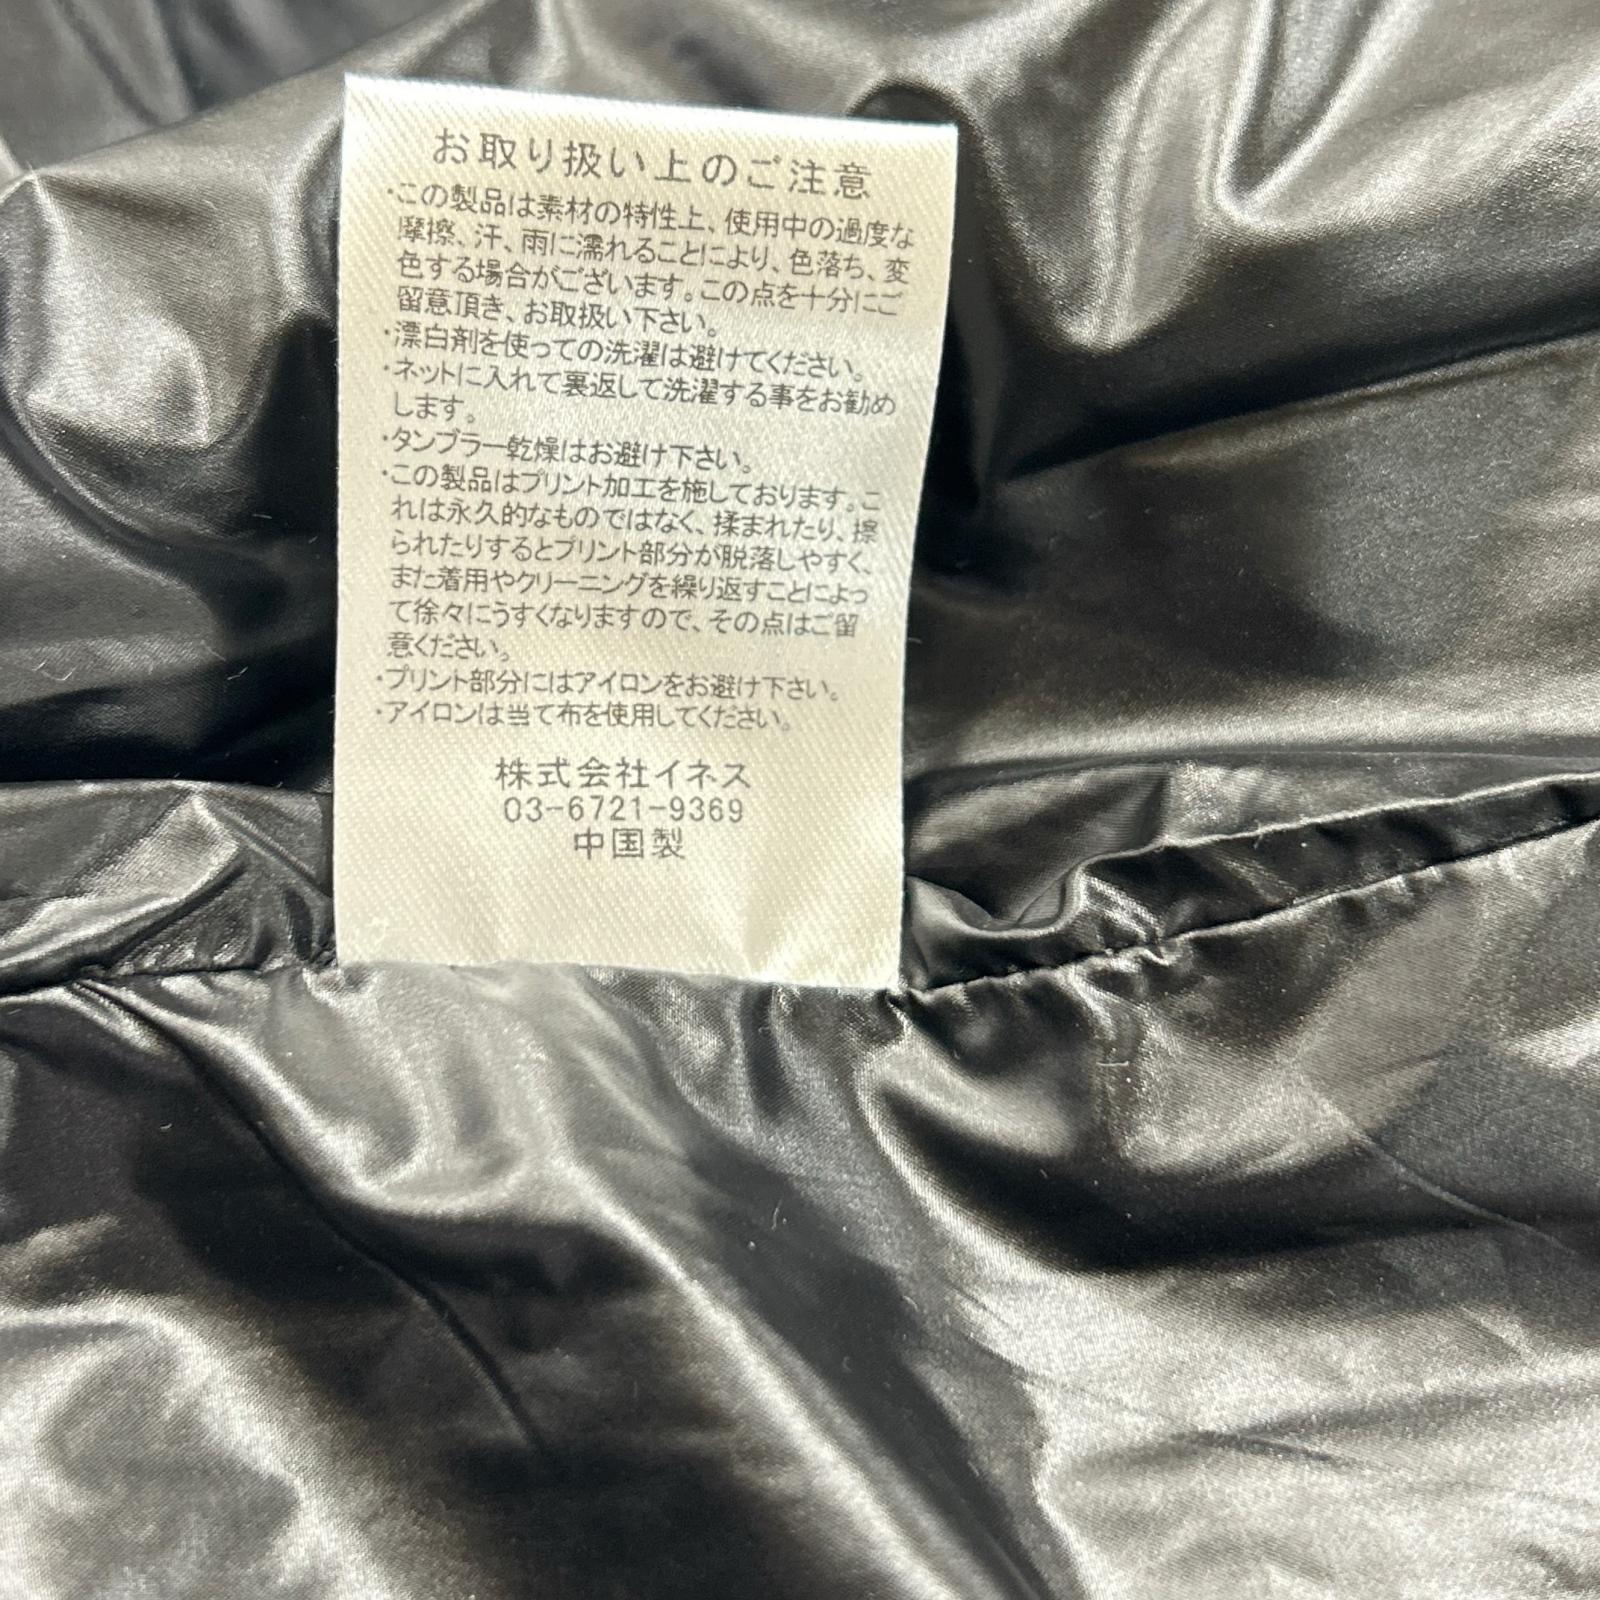 お取り扱い上のご注意
・この製品は素材の特性上、使用中の過度な
摩擦、汗、雨に濡れることにより、色落ち、変
色する場合がございます。この点を十分にご
留意頂き、お取扱い下さい。
・漂白剤を使っての洗濯は避けてください。
・ネットに入れて裏返して洗濯する事をお勧め
します。
・タンブラー乾燥はお避け下さい。
・この製品はプリント加工を施しております。こ
れは永久的なものではなく、揉まれたり、擦
られたりするとプリント部分が脱落しやすく、
また着用やクリーニングを繰り返すことによっ
て徐々にうすくなりますので、その点はご留
意ください。
・プリント部分にはアイロンをお避け下さい。
・アイロンは当て布を使用してください。
株式会社イネス
03-6721-9369
中国製